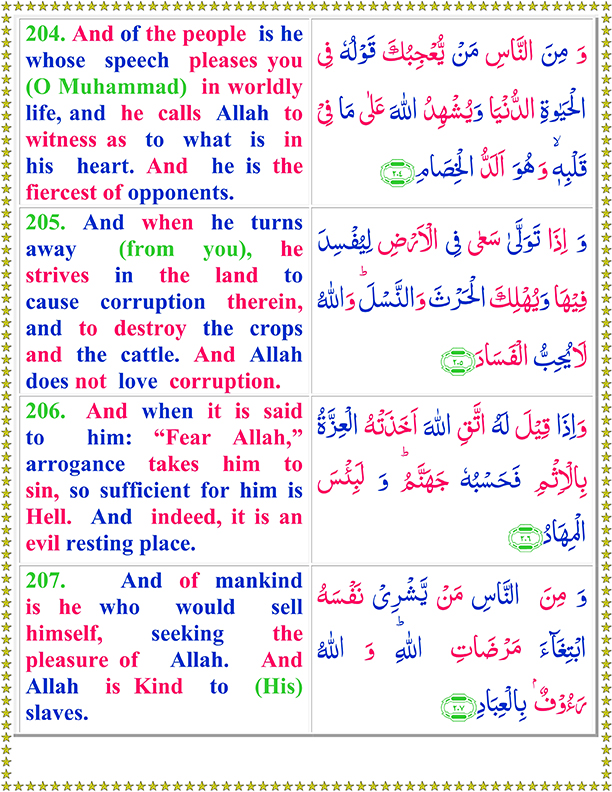 204. And of the people is he
whose speech pleases you
(O Muhammad) in worldly
life, and he calls Allah to
witness as to what is in
his heart. And he is the
fiercest of opponents.
وَ مِنَ النَّاسِ مَنْ يُّعْجِبُكَ قَوْلُهٗ فِی
الْحَيٰوةِ الدُّنْيَا وَيُشْهِدُ اللهَ عَلٰى مَا فِىْ
قَلْبِهٖ ۙ وَهُوَ اَلَدُّ الْخِصَامِ ﴿۲۰۴﴾
205. And when he turns
away (from you), he
strives in the land to
cause corruption therein,
and to destroy the crops
and the cattle. And Allah
does not love corruption.
وَ اِذَا تَوَلّٰى سَعٰى فِى الْاَرْضِ لِيُفْسِدَ
فِيْهَا وَيُهْلِكَ الْحَرْثَ وَالنَّسْلَ ؕ وَاللهُ
لَا يُحِبُّ الْفَسَادَ ﴿۲۰۵﴾
206. And when it is said
to him: “Fear Allah,”
arrogance takes him to
sin, so sufficient for him is
Hell. And indeed, it is an
evil resting place.
وَاِذَا قِيْلَ لَهُ اتَّقِ اللهَ اَخَذَتْهُ الْعِزَّةُ
بِالْاِثْمِ فَحَسْبُهٗ جَهَنَّمُ ؕ وَ لَبِئْسَ
الْمِهَادُ ﴿۲۰۶﴾
207. And of mankind
is he who would sell
himself, seeking the
pleasure of Allah. And
Allah is Kind to (His)
slaves.
وَ مِنَ النَّاسِ مَنْ يَّشْرِىْ نَفْسَهُ
ابْتِغَآءَ مَرْضَاتِ اللهِ ؕ وَ اللهُ
رَءُوْفٌۢ بِالْعِبَادِ ﴿۲۰۷﴾